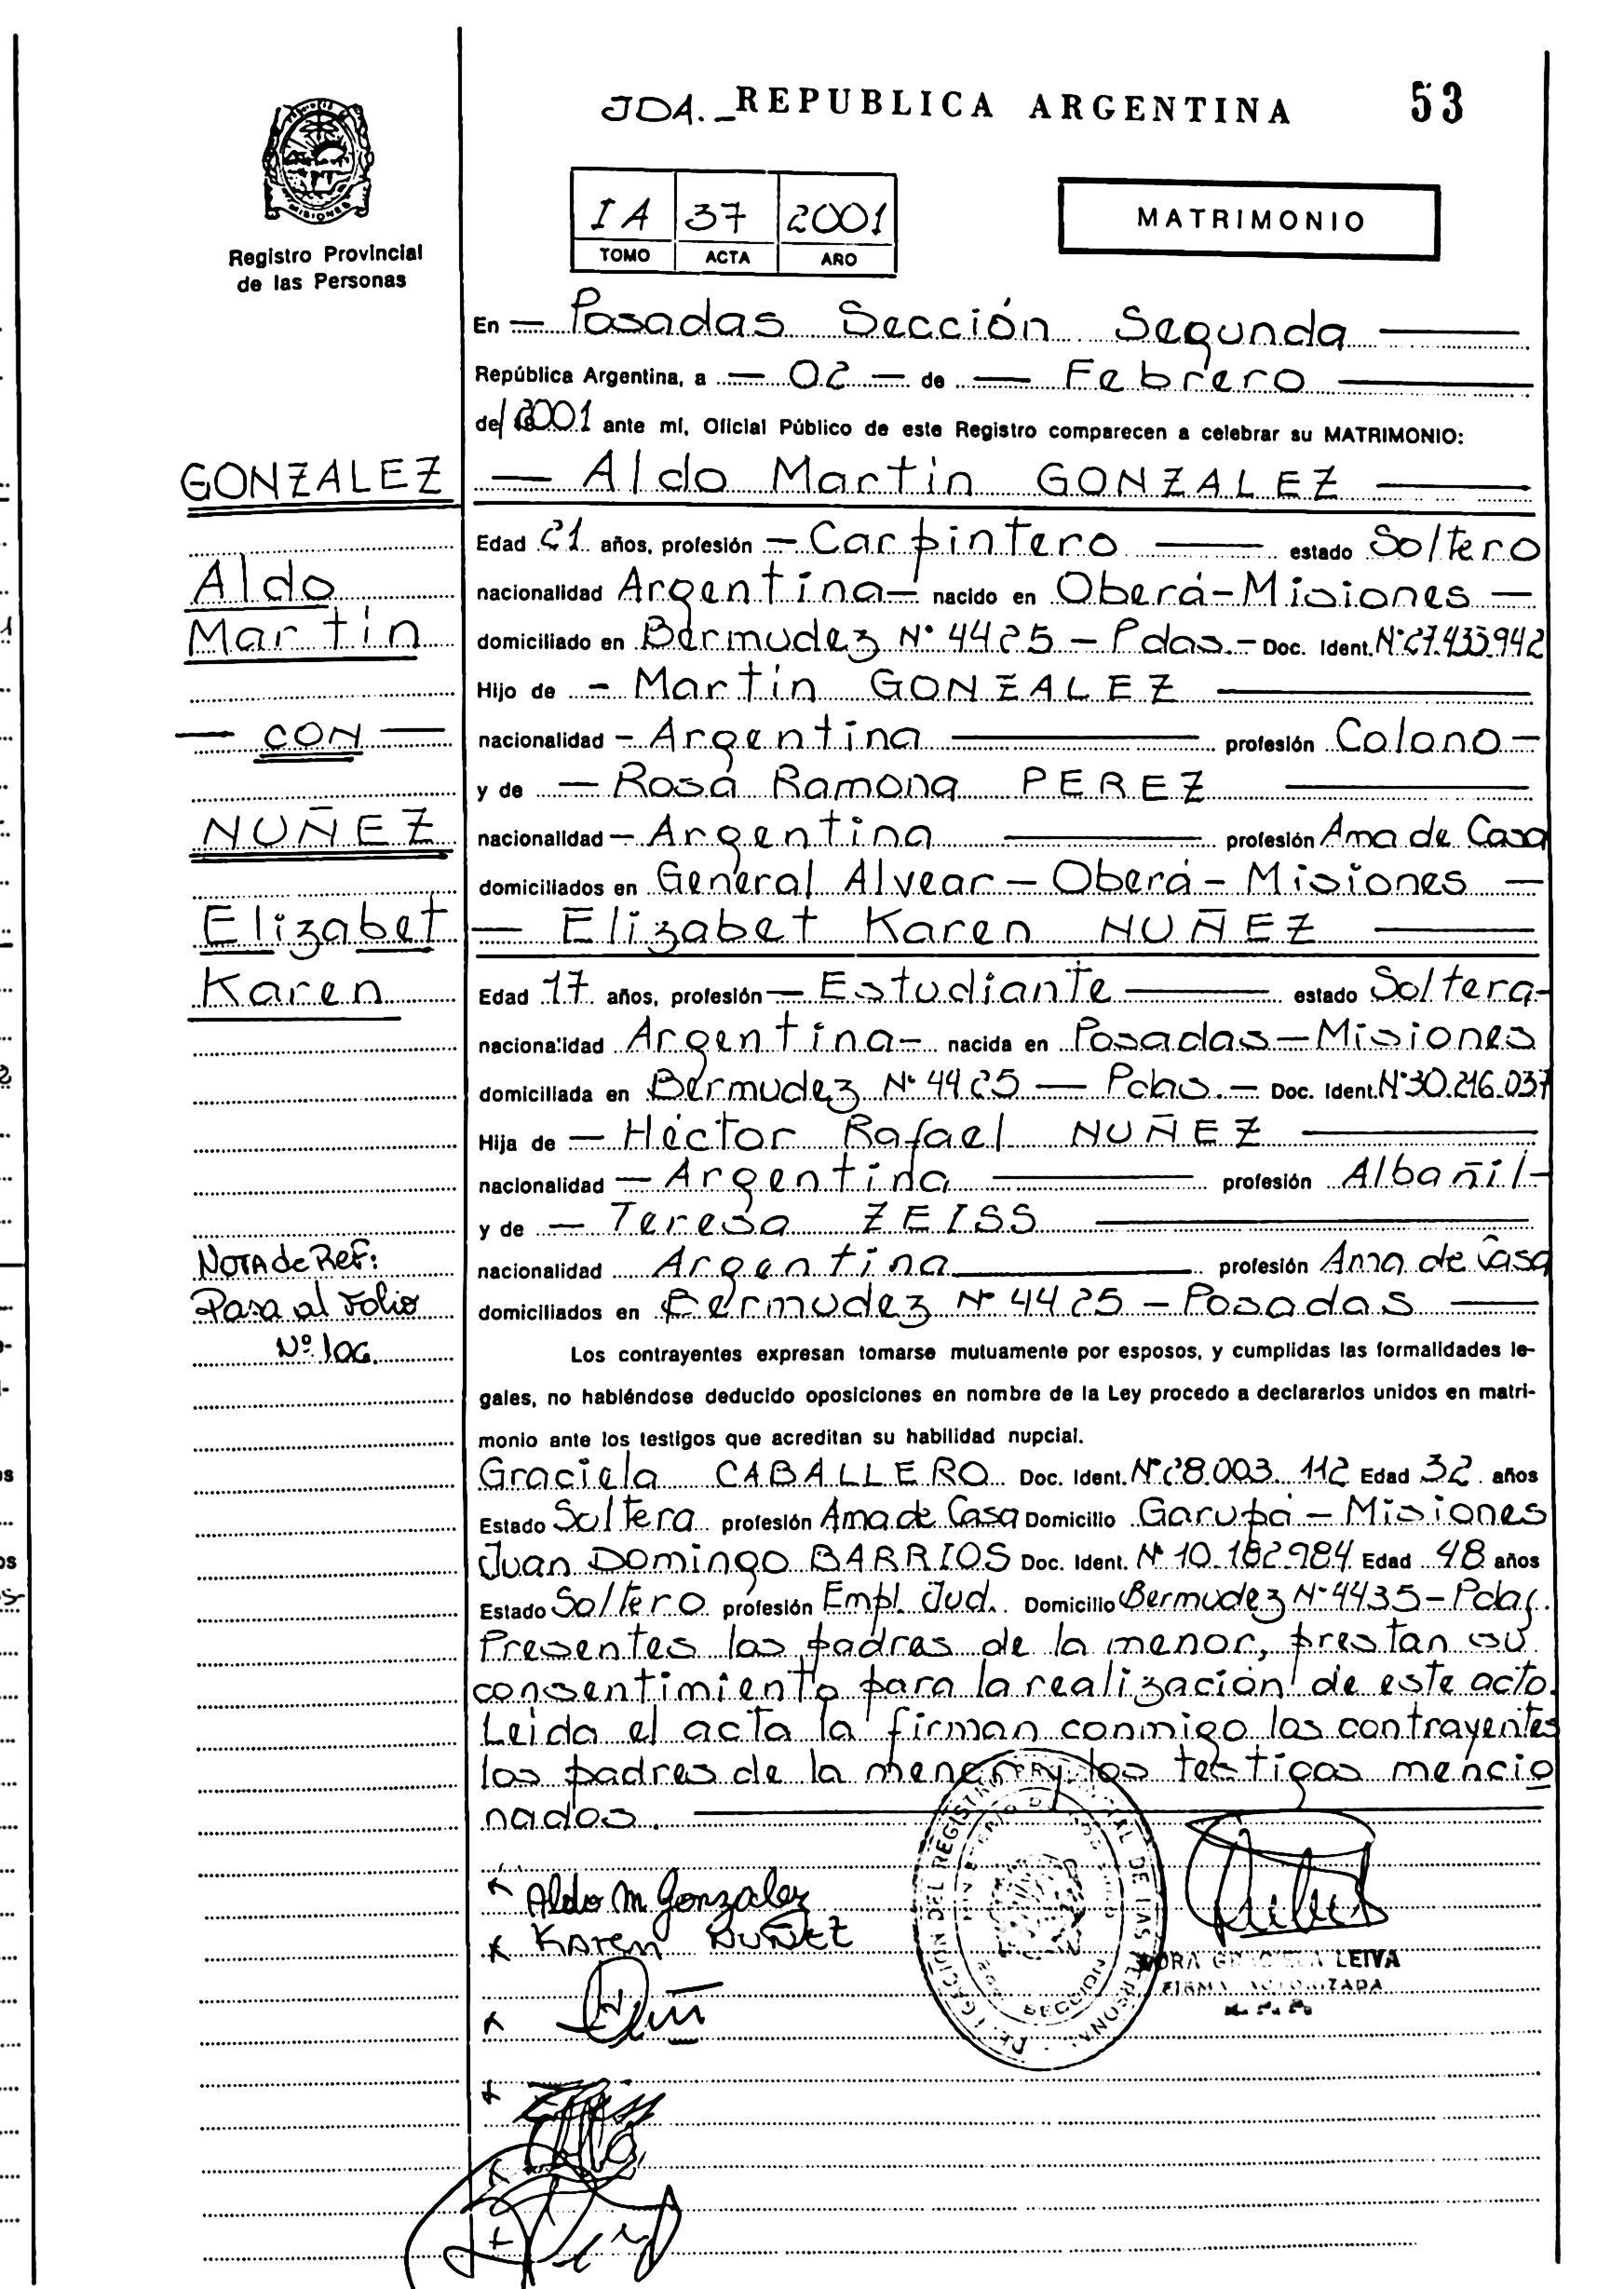 JDA._ REPUBLICA ARGENTINA 53
MISIONES
Registro Provincial
de las Personas
IA 37 2001
TOMO ACTA AÑO
MATRIMONIO
En — Posadas Sección Segunda —
República Argentina, a — 02 — de — Febrero —
del 2001 ante mí, Oficial Público de este Registro comparecen a celebrar su MATRIMONIO:
GONZALEZ
— Aldo Martin GONZALEZ —
Edad 21 años, profesión — Carpintero — estado Soltero
Aldo
nacionalidad Argentina — nacido en Oberá - Misiones —
Martín
domiciliado en Bermudez N° 4425 - Pdas. - Doc. Ident. N° 27.433.942
Hijo de - Martín GONZALEZ —
— CON —
nacionalidad - Argentina — profesión Colono -
y de — Rosa Ramona PEREZ —
NUÑEZ
nacionalidad - Argentina — profesión Ama de Casa
domiciliados en General Alvear - Oberá - Misiones —
Elizabet
— Elizabet Karen NUÑEZ —
Karen
Edad 17 años, profesión — Estudiante — estado Soltera -
nacionalidad Argentina - nacida en Posadas - Misiones
domiciliada en Bermudez N° 4425 — Pdas. — Doc. Ident. N° 30.216.037
Hija de — Héctor Rafael NUÑEZ —
nacionalidad — Argentina — profesión Albañil -
y de — Teresa ZEISS —
NOTA de Ref:
nacionalidad Argentina — profesión Ama de Casa
Pasa al Folio
domiciliados en Bermudez N° 4425 - Posadas —
Nº 106.
Los contrayentes expresan tomarse mutuamente por esposos, y cumplidas las formalidades le-
gales, no habiéndose deducido oposiciones en nombre de la Ley procedo a declararlos unidos en matri-
monio ante los testigos que acreditan su habilidad nupcial.
Graciela CABALLERO Doc. Ident. N° 28.003.112 Edad 32 años
Estado Soltera profesión Ama de Casa Domicilio Garupá - Misiones
Juan Domingo BARRIOS Doc. Ident. N° 10.182.984 Edad 48 años
Estado Soltero profesión Empl. Jud. Domicilio Bermudez N° 4435 - Pdas.
Presentes los padres de la menor, prestan su
consentimiento para la realización de este acto.
Leida el acta la firman conmigo los contrayentes
los padres de la menor y los testigos mencio
nados.
Aldo M Gonzalez
Karen NUÑEZ
DELEGACION DEL REGISTRO PROVINCIAL DE LAS PERSONAS
SECCION
GRACIELA LEIVA
FIRMA AUTORIZADA